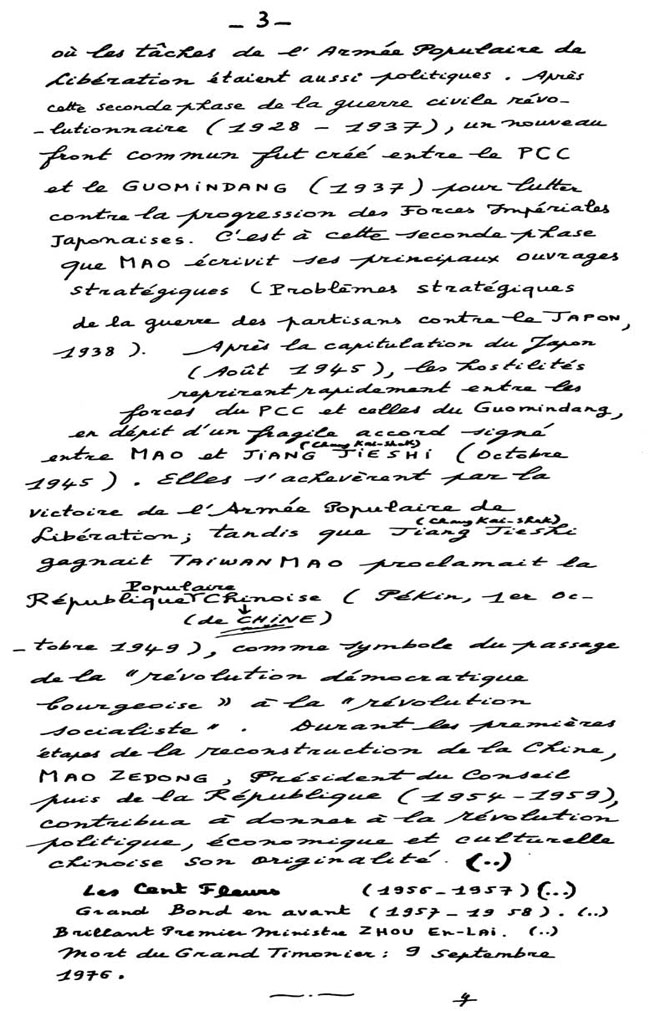 - 3 -
où les tâches de l'Armée Populaire de
Libération étaient aussi politiques. Après
cette seconde phase de la guerre civile révo-
-lutionnaire (1928 - 1937), un nouveau
front commun fut créé entre le PCC
et le GUOMINDANG (1937) pour lutter
contre la progression des Forces Impériales
Japonaises. C'est à cette seconde phase
que MAO écrivit ses principaux ouvrages
stratégiques (Problèmes stratégiques
de la guerre des partisans contre le JAPON,
1938). Après la capitulation du Japon
(Août 1945), les hostilités
reprirent rapidement entre les
forces du PCC et celles du Guomindang,
en dépit d'un fragile accord signé
(Chang Kai-Shek)
entre MAO et JIANG JIESHI (Octobre
1945). Elles s'achevèrent par la
victoire de l'Armée Populaire de
(Chang Kai-Shek)
Libération; tandis que Jiang Jieshi
gagnait TAIWAN MAO proclamait la
Populaire
République Chinoise (Pékin, 1er Oc-
(de CHINE)
-tobre 1949), comme symbole du passage
de la "révolution démocratique
bourgeoise" à la "révolution
socialiste". Durant les premières
étapes de la reconstruction de la Chine,
MAO ZEDONG, Président du Conseil
puis de la République (1954-1959),
contribua à donner à la révolution
politique, économique et culturelle
chinoise son originalité. (..)
Les Cent Fleurs (1956-1957) (...)
Grand Bond en avant (1957-1958). (..)
Brillant Premier Ministre ZHOU En-Lai. (..)
Mort du Grand Timonier: 9 Septembre
1976.
4